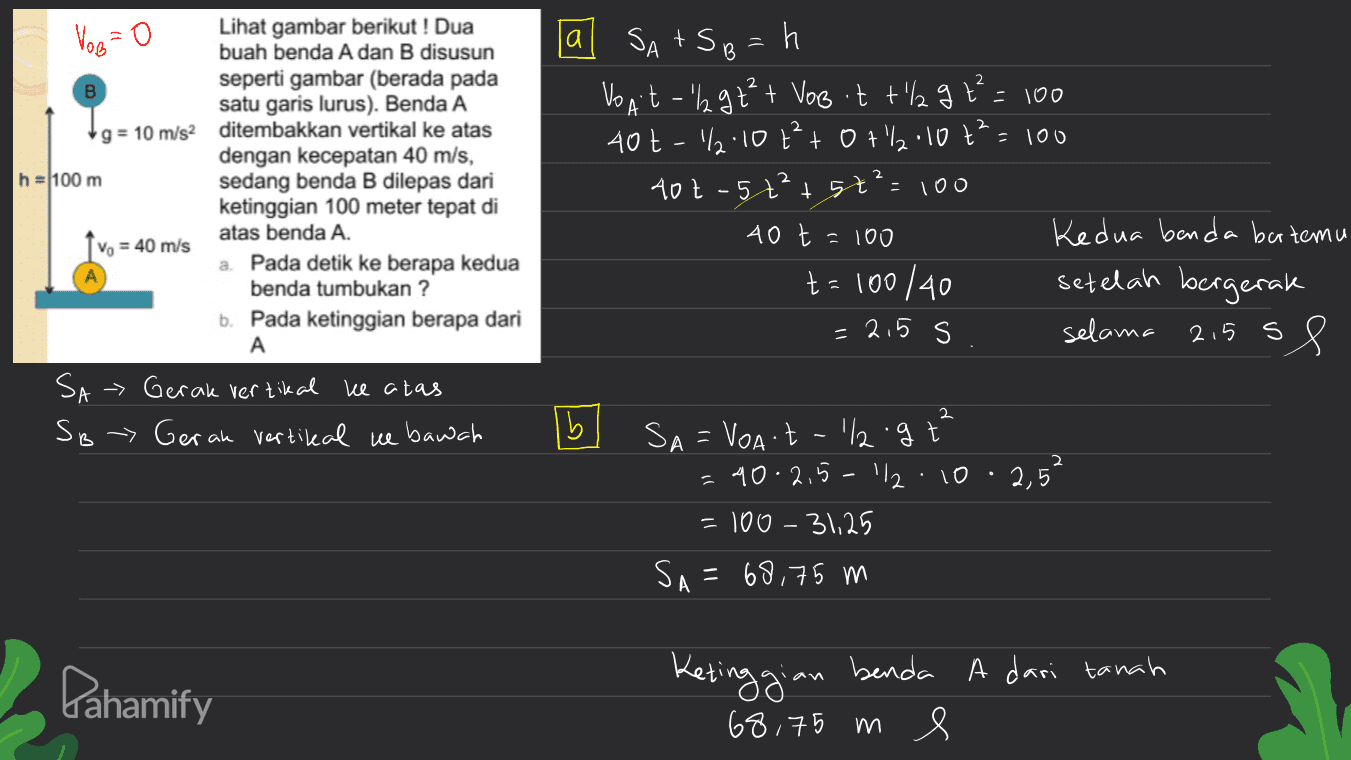 V₀B = 0
B
g = 10 m/s²
h = 100 m
v₀ = 40 m/s
A
Lihat gambar berikut ! Dua
buah benda A dan B disusun
seperti gambar (berada pada
satu garis lurus). Benda A
ditembakkan vertikal ke atas
dengan kecepatan 40 m/s,
sedang benda B dilepas dari
ketinggian 100 meter tepat di
atas benda A.
a. Pada detik ke berapa kedua
benda tumbukan ?
b. Pada ketinggian berapa dari
A
SA → Gerak vertikal ke atas
SB → Gerak vertikal ke bawah
a SA + SB = h
V₀A·t - 1/2 gt² + V₀B·t + 1/2 g t² = 100
40 t - 1/2·10 t² + 0 + 1/2·10 t² = 100
40 t - 5 t² + 5 t² = 100
40 t = 100
t = 100/40
= 2,5 s.
Kedua benda bertemu
setelah bergerak
selama 2,5 s
b SA = V₀A·t - 1/2·g t²
= 40·2,5 - 1/2·10·2,5²
= 100 - 31,25
SA = 68,75 m
Ketinggian benda A dari tanah
68,75 m
Pahamify